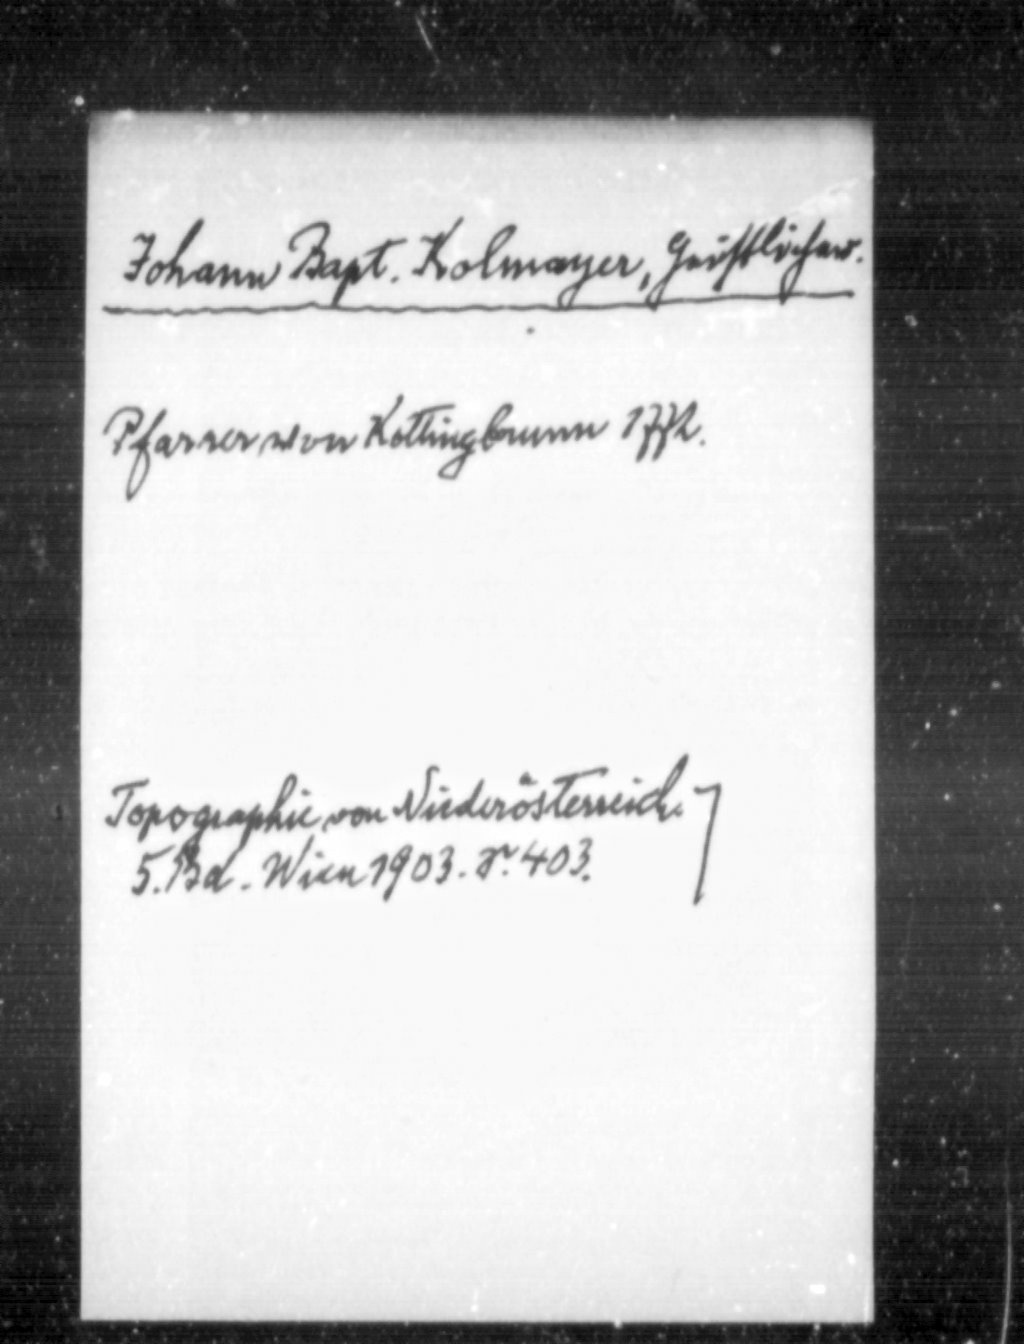 Johann Bapt. Kolmayer, Geistlicher.
Pfarrer von Kottingbrunn 1772.
Topographie von Niederösterreich.
5. Bd. Wien 1903. S. 403.